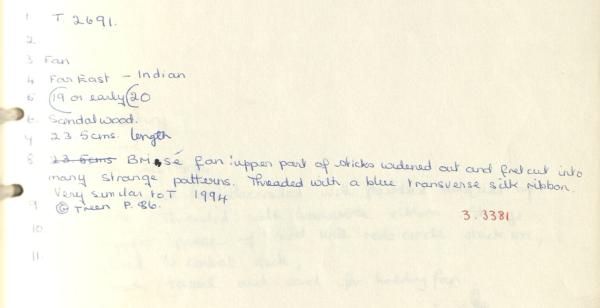 1 T. 2691.
2
3 Fan
4 Far East - Indian
5 (19 or early (20
6. Sandalwood.
7 23 5cms. length
8 23.5cms BMsé fan: upper part of sticks widened out and fret cut into
many strange patterns. Threaded with a blue transverse silk ribbon.
Very similar to T 1994
9 © Treen P. 86.
3.3381
10
11.